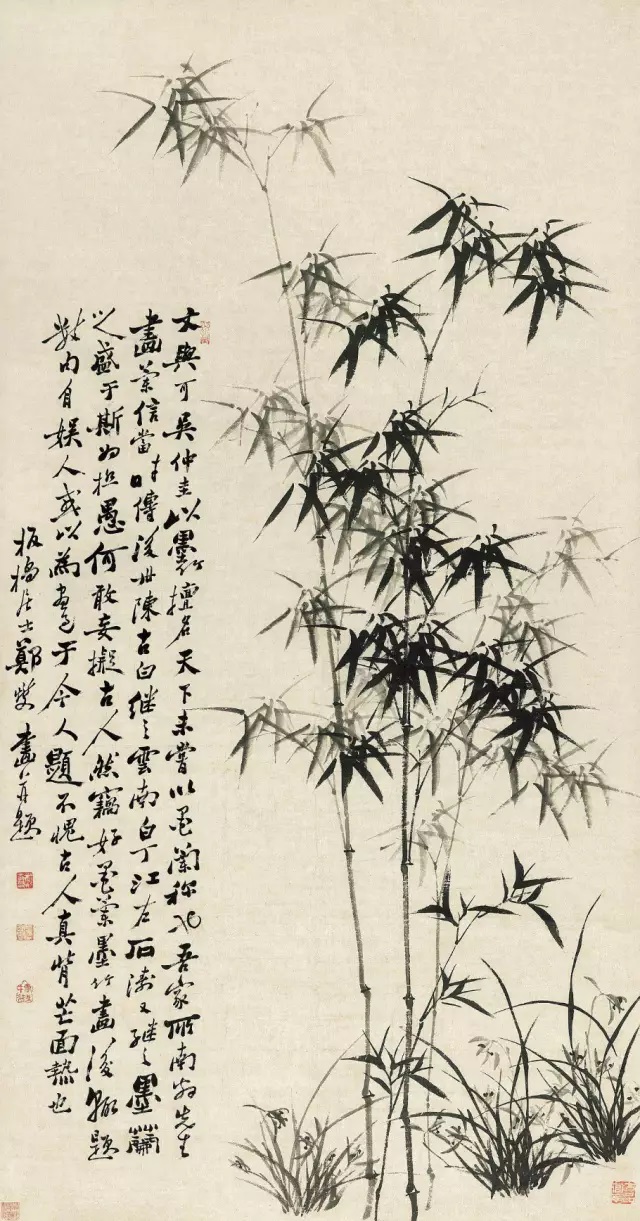 文與可吳仲圭以墨竹擅名天下未嘗以墨蘭称也吾家所南翁先生
畫蘭信當时傳後世陳古白继之雲南白丁江左石涛又继之墨蘭
之盛于斯为极愚何敢妄擬古人然竊好墨蘭墨竹畫後輒題
内自娱人或以為畫于今人題不愧古人真背芒面熱也
板橋居士鄭燮畫并題